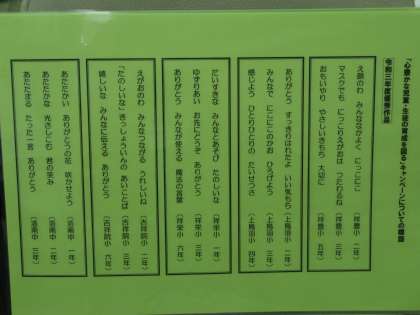 「心豊かな児童・生徒の育成を図る」キャンペーンについての標語
令和三年度優秀作品
え顔のわ みんななかよく にっこにこ （祥豊小 一年）
マスクでも にっこりえがおは つたわるね （祥豊小 三年）
おもいやり やさしいきもち 大切に （祥豊小 五年）
ありがとう すっきりはれたよ いい気もち （上鳥羽小 二年）
みんなで にこにこのかお ひろげよう （上鳥羽小 三年）
感じよう ひとりひとりの たいせつさ （上鳥羽小 四年）
だいすきな みんなとあそび たのしいな （祥栄小 一年）
ゆずりあい お先にどうぞ ありがとう （祥栄小 三年）
ありがとう みんなが使える 魔法の言葉 （祥栄小 六年）
えがおのわ みんなつながる うれしいね （吉祥院小 二年）
「たのしいな」きっしょういんの あいことば （吉祥院小 三年）
嬉しいな みんなに伝える ありがとう （吉祥院小 六年）
あたたかい ありがとうの花 咲かせよう （洛南中 一年）
あたたかな 光さしこむ 君の笑み （洛南中 二年）
あたたまる たった一言 ありがとう （洛南中 三年）